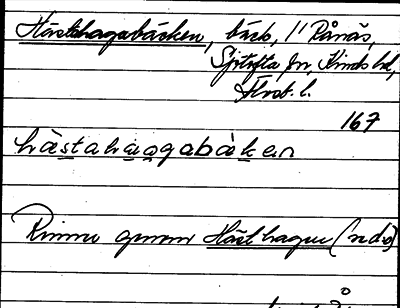 Hästhagabäcken, bäck, i Rånäs,
Sjötofta sn, Kinds hd,
Älvsb. l.
167
hästahagabäken
Rinner genom Hästhagen (se d.o)